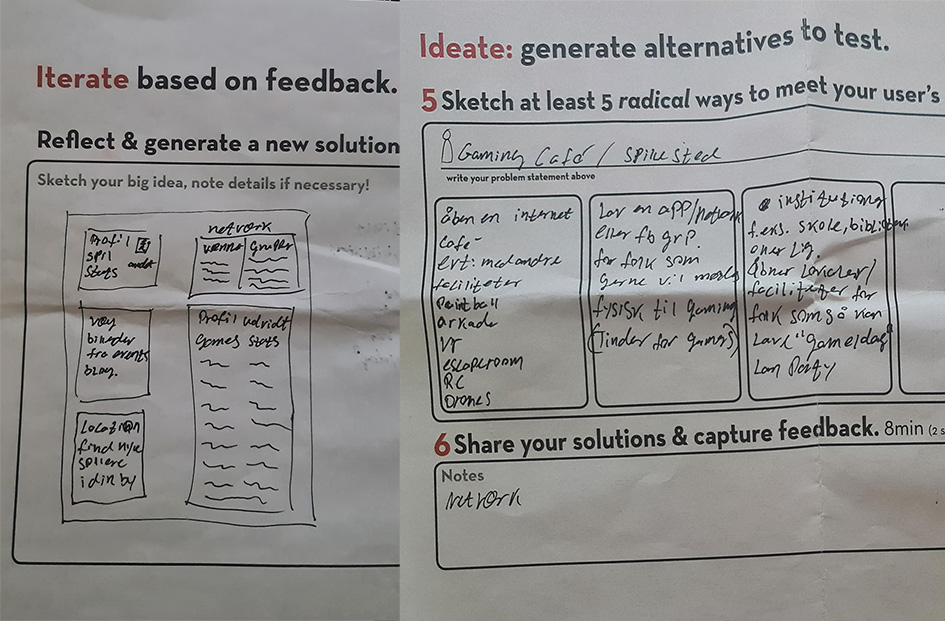 Iterate based on feedback.
Reflect & generate a new solution
Sketch your big idea, note details if necessary!
Profil
spil
stats andet
network
venner grupper
billeder
fra events
blog.
Profil udvidt
Games stats
Location
find nye
spillere
i din by
Ideate: generate alternatives to test.
5 Sketch at least 5 radical ways to meet your user's
Gaming Café / spille sted
write your problem statement above
Åben en internet
Café
evt: med andre
faciliteter
Paintball
arkade
VR
escaperoom
RC
Drones
Lav en app/network
eller fb grp.
for folk som
gerne vil
fysisk til gaming
(Tinder for games)
institutioner
f.eks. skole, bibliotek
åbner lokaler/
faciliteter for
folk som så kan
Lave "game/dag"
Lan Party
6 Share your solutions & capture feedback. 8min (2 s
Notes
Network